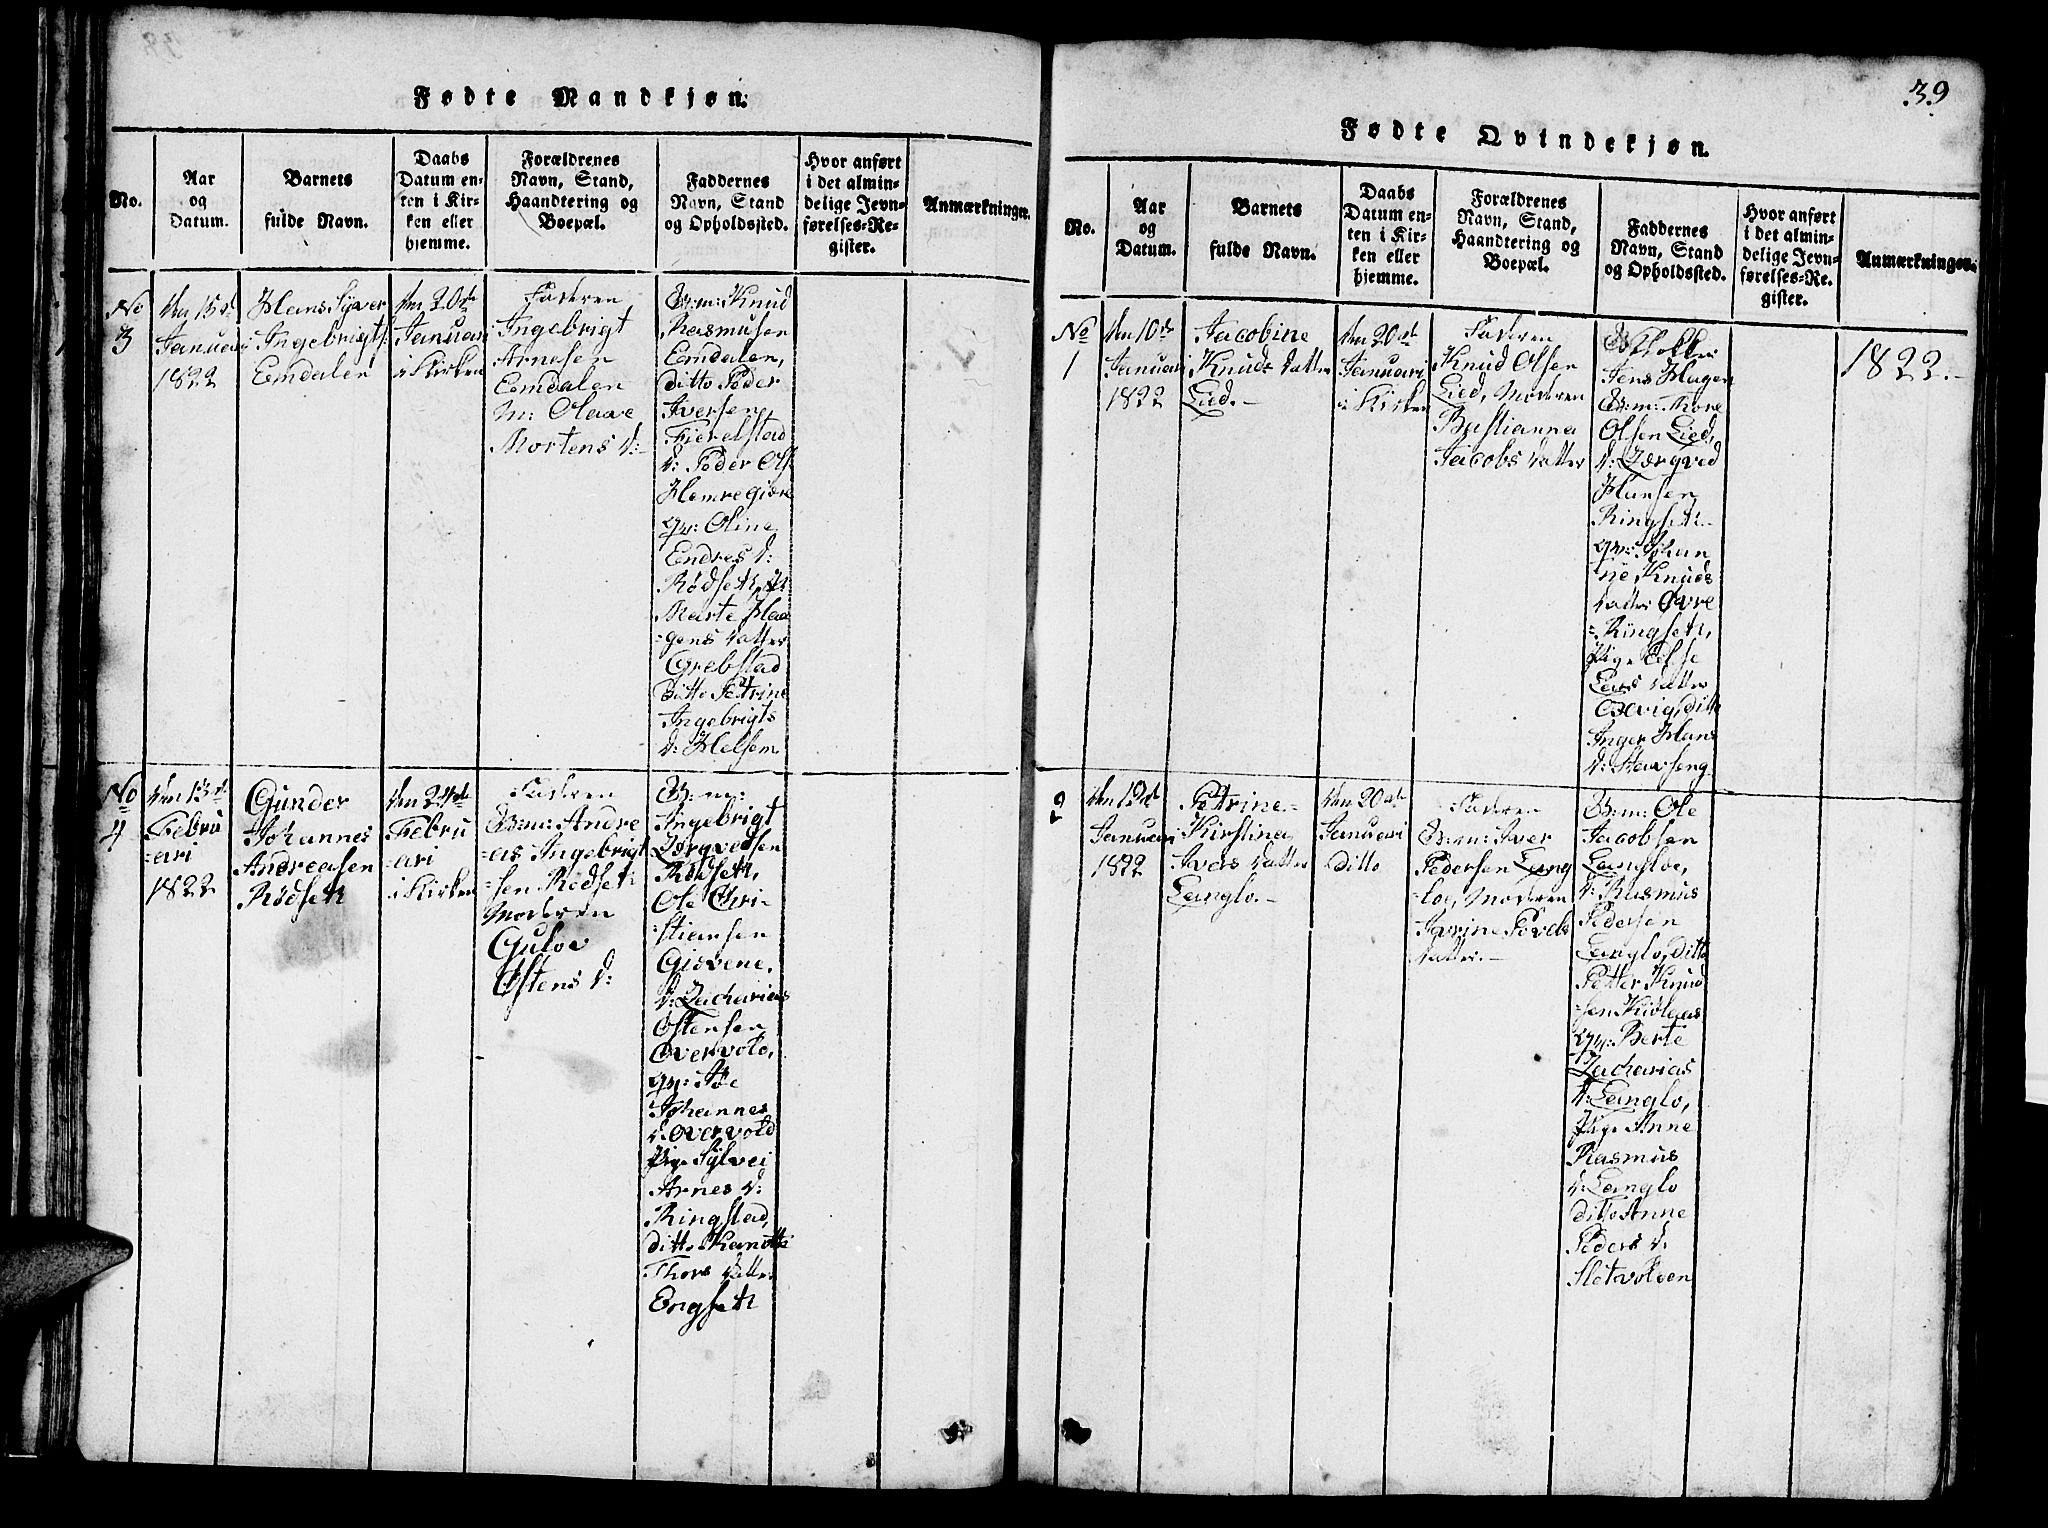 Fødte Mandkjøn.
No.
Aar
og
Datum.
Barnets
fulde Navn.
Daabs
Datum en-
ten i Kir-
ken eller
hjemme.
Forældrenes
Navn, Stand,
Haandtering og
Boepæl.
Faddernes
Navn, Stand
og Opholdssted.
Hvor anført
i det almin-
delige Jevn-
førelses-Re-
gister.
Anmærkninger.
No
3
den 15de
Januari
1822
Hans Syver
Ingebrigts:
Emdalen
den 20de
Januari
i Kirken
Faderen
Ingebrigt
Arnesen
Emdalen
M: Olave
Mortens d:
G:m: Knud
Rasmusen
Emdalen,
Ditto Peder
Iversen
Fierelstad
d: Peder Ols
Hemregiøre
q: Oline
Endres d:
Rødseth,
Marte Haa
=gens datter
Grebstad
Ditto Petrine
Ingebrigts
d: Helsem
No
4
den 13de
Febru
=ari
1822
Gunder
Johannes
Andreasen
Rødseth
den 24de
Febru
=ari
i Kirken
Faderen
G:m: Andre
=as Ingebrigt
=sen Rødseth
Moderen
Gulov
Ostens d:
G:m:
Ingebrigt
Zørgvedsen
Rødseth,
Ole Chri-
=stiansen
Giøvene,
d: Zacharias
Ostensen
Overvold,
q:
Johannes
d: Overvold
Pige Sylvei
Arnes d:
Ringstad,
ditto
Thors datter
Engseth
39
Fødte Qvindekjøn.
No.
Aar
og
Datum.
Barnets
fulde Navn.
Daabs
Datum en-
ten i Kir-
ken eller
hjemme.
Forældrenes
Navn, Stand,
Haandtering og
Boepæl.
Faddernes
Navn, Stand
og Opholdssted.
Hvor anført
i det almin-
delige Jevn-
førelses-Re-
gister.
Anmærkninger.
No
1
den 10de
Januari
1822
Jacobine
Knuds datter
Lied.-
den 20de
Januari
i Kirken
Faderen
Knud Olsen
Lied, Moderen
Bastianna
Jacobs datter
Klokker
Jens Hagen
G:m: Tore
Olsen Lied,
d: Zørgved
Hansen
Ringseth-
q: Johan
=ne Knuds
datter Øvre
=Ringseth,
Pige Else
Lars datter
Ditto
Inger Hans
d: Havseng
1822.-
2
den 12de
Januari
1822
Petrine-
Kirstina
Ivers datter
Langlo.-
den 20de
Januari
Ditto
Faderen
G:m: Iver
Pedersen Lang
=loe, Moderen
Povels
datter.-
G:m: Ole
Jacobsen
Langloe,
d: Rasmus
Pedersen
Langlo, Ditto
Petter Knud
=sen Kiølaas
q: Berte
Zacharias
d: Langlo,
Pige Anne
Rasmus
d: Langlo
Ditto Anne
Peders d:
Sletvolden